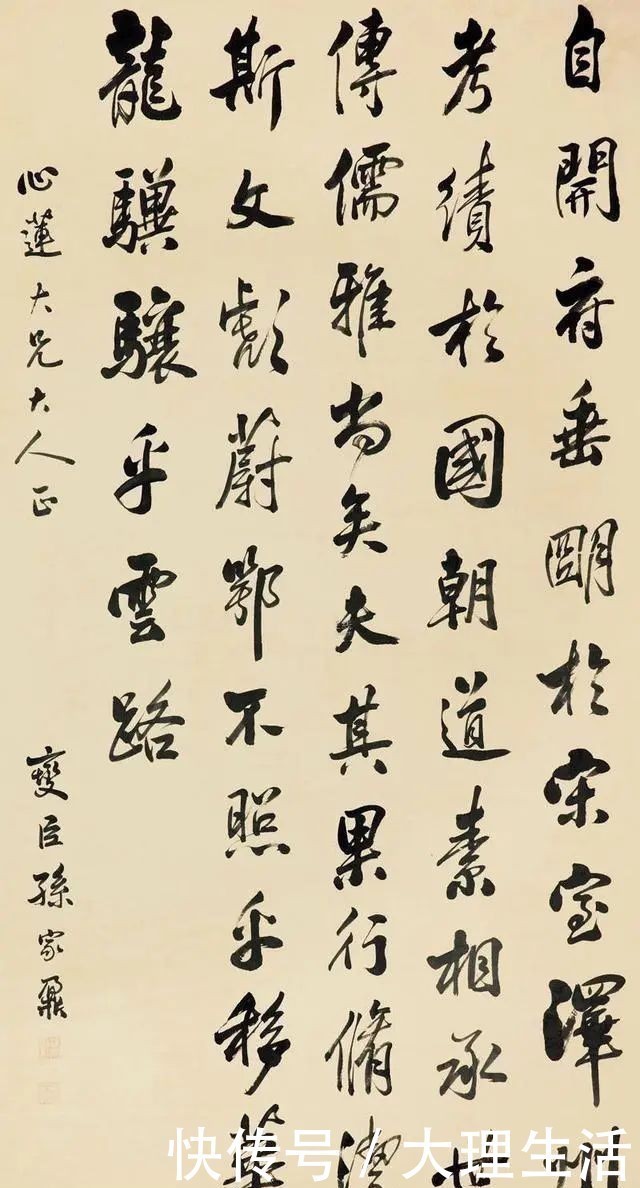 自開府垂朙於宋室澤州
考績於國朝道素相承世
傳儒雅尚矣夫其果行脩潔
斯文彪蔚鄂不照乎移華
龍驥驤乎雲路
心蓮大兄大人正
燮臣孫家鼐
快传号/大理生活